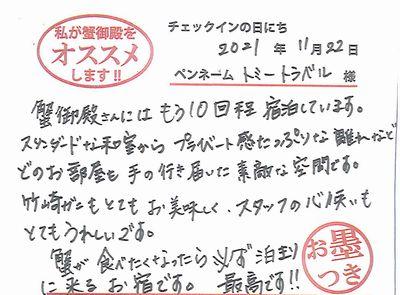 私が蟹御殿を
オススメ
します!!
チェックインの日にち
2021 年 11月 22日
ペンネーム トミートラベル 様
蟹御殿さんには もう10回程 宿泊しています。
スタンダードな和室から プライベート感たっぷりな 離れなど
どのお部屋も 手の行き届いた 素敵な空間です。
竹崎がにもとても お美味しく、スタッフの心使いも
とてもうれしいです。
蟹が 食べたくなったら 必ず 泊まり
に来る お宿です。 最高です!!
お墨
つき